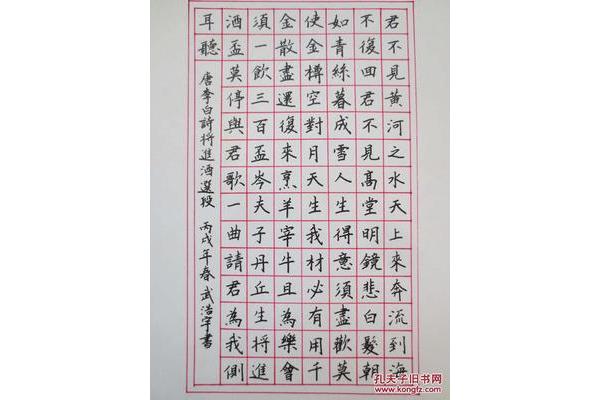 君不見黃河之水天上來奔流到海
不復回君不見高堂明鏡悲白髮朝
如青絲暮成雪人生得意須盡歡莫
使金樽空對月天生我材必有用千
金散盡還復來烹羊宰牛且為樂會
須一飲三百盃岑夫子丹丘生將進
酒盃莫停與君歌一曲請君為我側
耳聽
唐李白詩將進酒選段 丙戌年春 武浩宇書
孔夫子旧书网